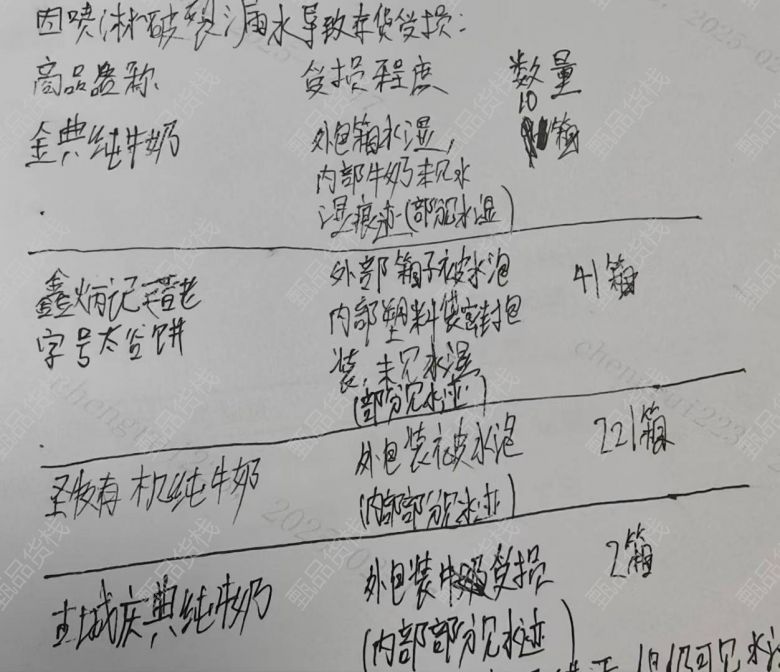 因喷淋破裂漏水导致存货受损：
商品名称 受损程度 数量
金典纯牛奶 外包箱水湿， 10箱
内部牛奶未见水
湿痕迹（部分见水湿）
鑫炳记
字号太谷饼
外部箱子被水泡 41箱
内部塑料袋密封包
装，未见水湿
（部分见水迹）
圣牧有机纯牛奶 外包装被水泡 221箱
（内部部分见水迹）
庆典纯牛奶 外包装牛奶受损 2箱
（内部部分见水迹）
仍可见水
甄品货栈
chengcai223